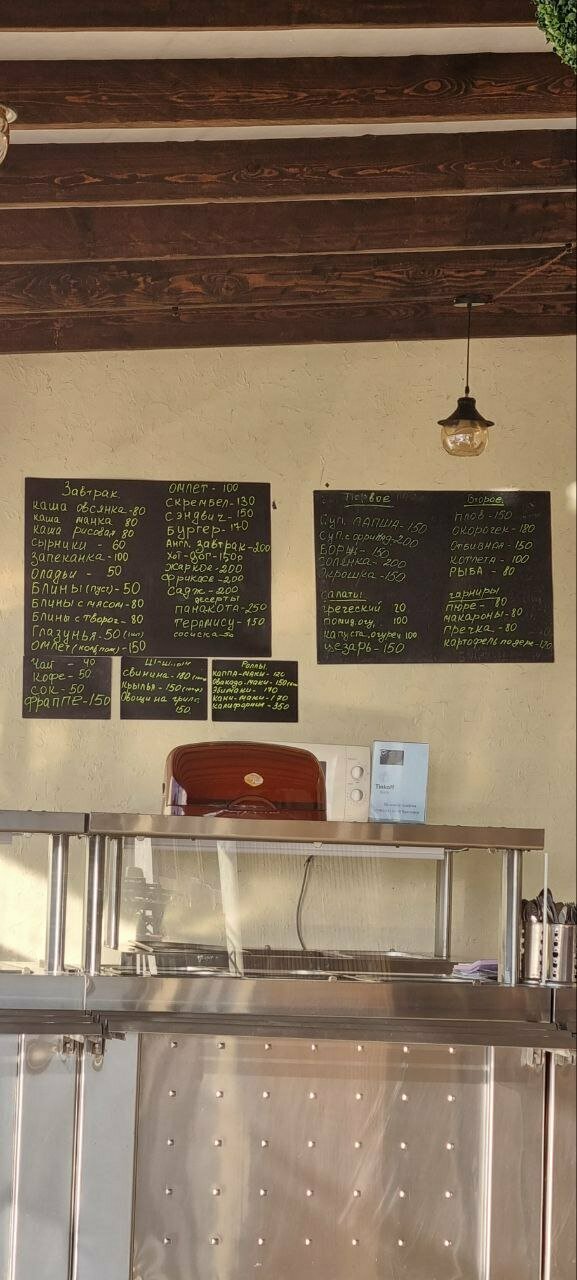 Завтрак
каша овсянка-80
каша манка 80
каша рисовая 80
сырники 60
запеканка-100
оладьи - 50
Блины (пуст)-50
Блины с мясом-80
Блины с творог-80
Глазунья-50
омлет-150
омлет-100
скрембел-130
сэндвич-150
Бургер-140
Англ. завтрак-200
Хот-дог-150р
жаркое-200
фрикасе-200
Садж-200
десерты
панакота-250
терамису-150
сосиска-50
Первое
Суп. ЛАПША-150
Суп.с фрикад-200
БОРЩ-150
солянка-200
окрошка-150
салаты:
греческий 70
помид.огу. 100
капуста,огурец 100
цезарь-150
Второе
плов-150
окорочек-180
отбивная-150
котлета-100
РЫБА-80
гарниры
пюре-80
макароны-80
гречка-80
картофель по дере-120
Чай - 40
кофе-50
сок-50
фраппе-150
свинина-180
крылья-150
Овощи на грил
150
Роллы.
каппа-маки-120
авакадо-маки-150
Эбимаки-140
Кани-маки-170
калифорния-350
Tinkoff